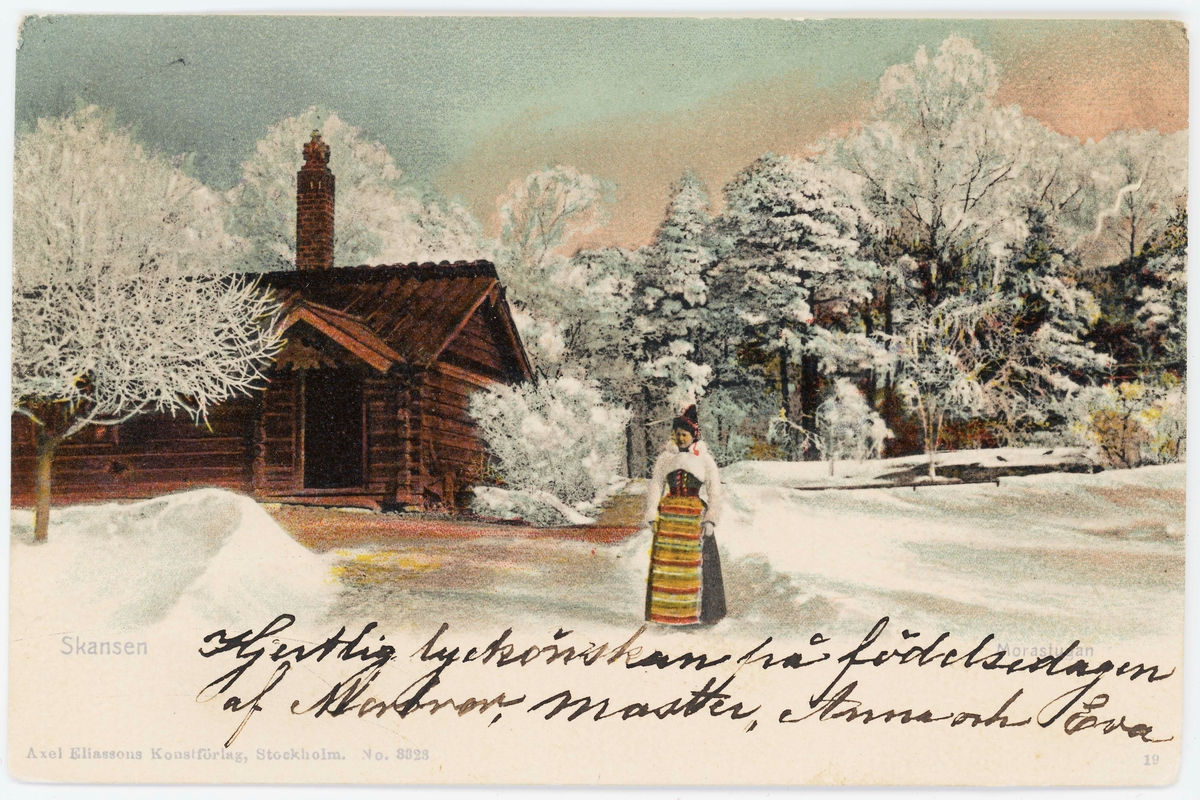 Skansen
Morastugan
Hjertlig lyckönskan på födelsedagen
af Morbror, moster, Anna och Eva
Axel Eliassons Konstförlag, Stockholm. No. 3328
19